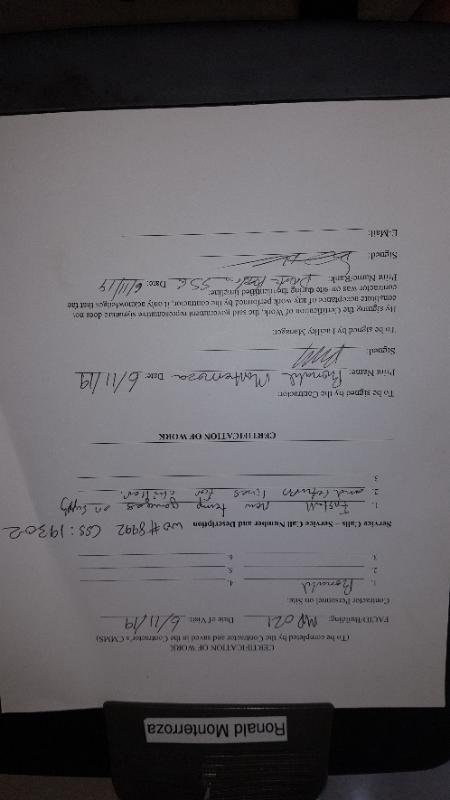 Ronald Monterroza
CERTIFICATION OF WORK
(To be completed by the Contractor and saved in the Contractor's CMMS)
FACID/Building: MD021 Date of Visit: 6/11/19
Contractor Personnel on Site:
1. Ronald 4.
2. 5.
3. 6.
Service Calls – Service Call Number and Description WO#8992 CSS: 19302
1. Install new temp gauges on supply
2. and return lines for chiller.
3.
CERTIFICATION OF WORK
To be signed by the Contractor:
Print Name: Ronald Monterroza Date: 6/11/19
Signed:
To be signed by Facility Manager:
By signing the Certification of Work, the said government representative signature does not
constitute acceptance of any work performed by the contractor, it only acknowledges that the
contractor was on site during the identified timeline.
Print Name/Rank: SSG Date: 6/11/19
Signed:
E-Mail: